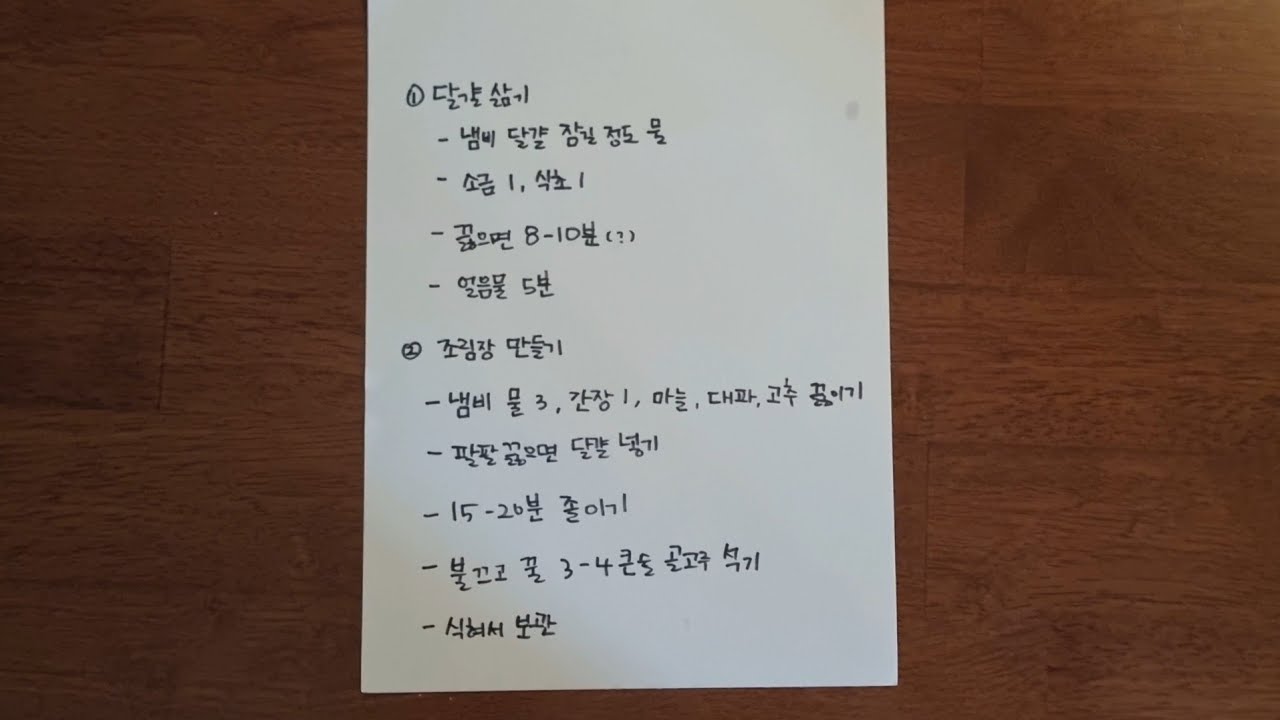 ① 달걀 삶기
- 냄비 달걀 잠길 정도 물
- 소금 1, 식초 1
- 끓으면 8-10분(?)
- 얼음물 5분
② 조림장 만들기
- 냄비 물 3, 간장 1, 마늘, 대파, 고추 끓이기
- 팔팔 끓으면 달걀 넣기
- 15-20분 졸이기
- 불끄고 꿀 3-4큰술 골고루 석기
- 식혀서 보관